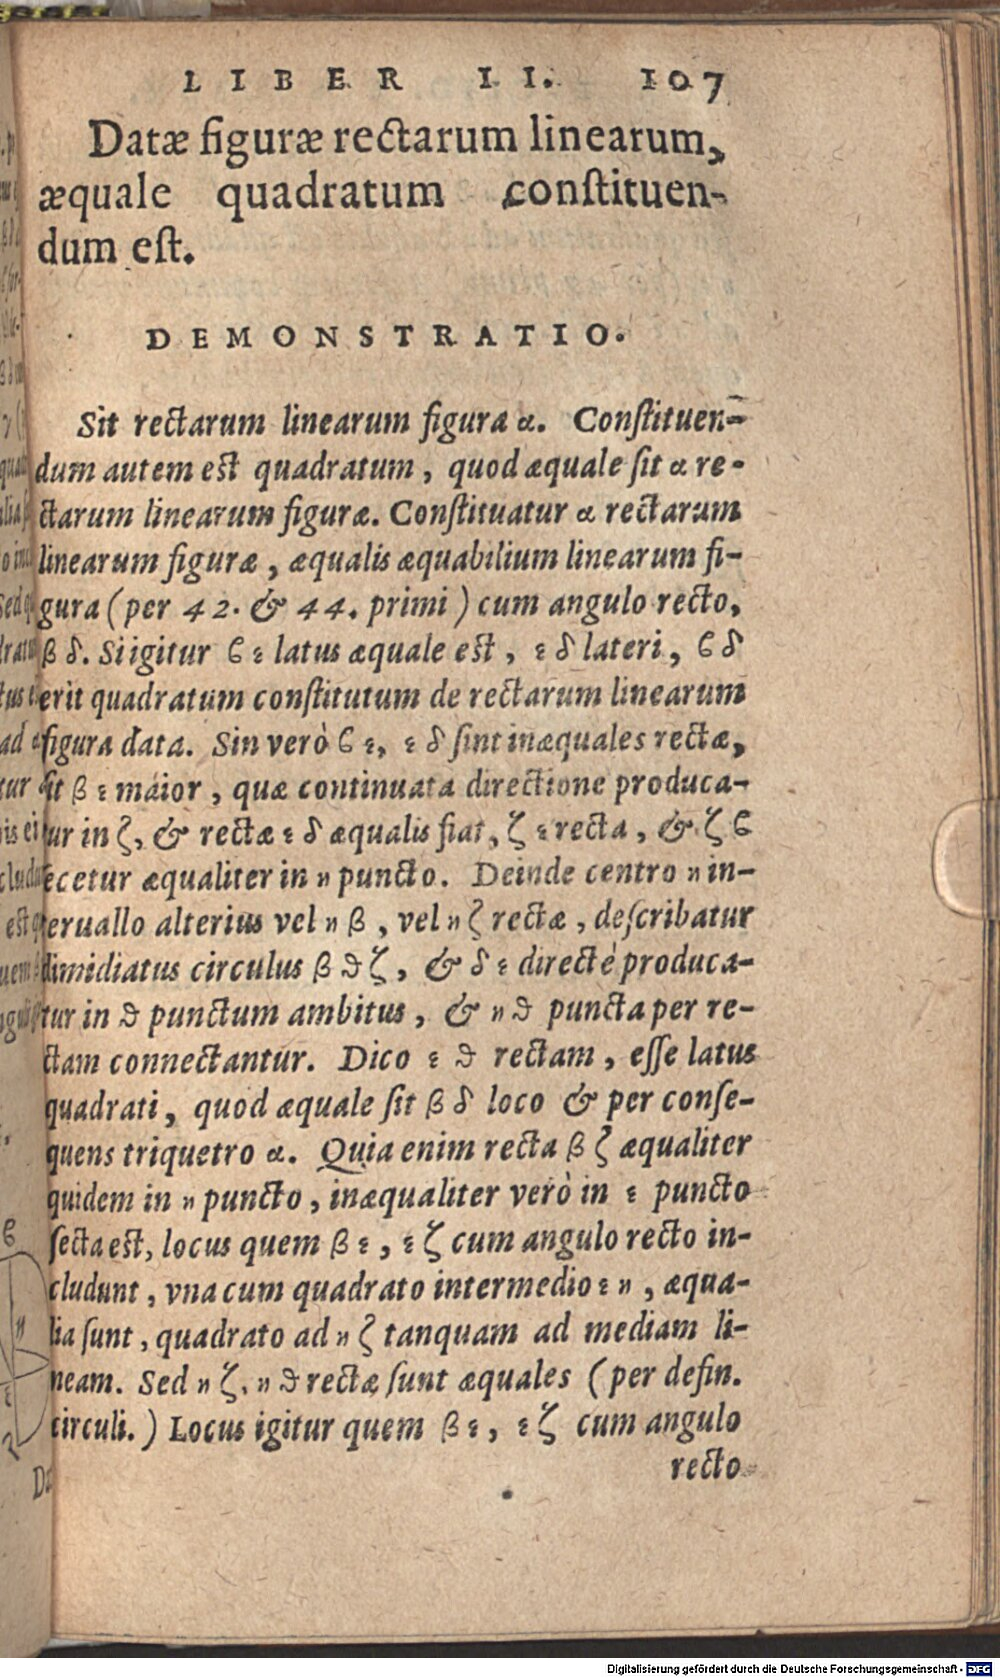 LIBER II. 107
Datæ figuræ rectarum linearum,
æquale quadratum constituen-
dum est.
DEMONSTRATIO.
Sit rectarum linearum figura α. Constituen-
dum autem est quadratum, quod æquale sit α re-
ctarum linearum figuræ. Constituatur α rectarum
linearum figuræ, æqualis æquabilium linearum fi-
gura (per 42. & 44. primi) cum angulo recto,
β δ. Si igitur ϐ ε latus æquale est, ε δ lateri, ϐ δ
erit quadratum constitutum de rectarum linearum
figura data. Sin verò ϐ ε, ε δ sint inæquales rectæ,
sit β ε maior, quæ continuata directione produca-
tur in ζ, & rectæ ε δ æqualis fiat, ζ ε recta, & ζ ϐ
secetur æqualiter in η puncto. Deinde centro η in-
teruallo alterius vel η β, vel η ζ rectæ, describatur
dimidiatus circulus β ϑ ζ, & δ ε directè produca-
tur in ϑ punctum ambitus, & η ϑ puncta per re-
ctam connectantur. Dico ε ϑ rectam, esse latus
quadrati, quod æquale sit β δ loco & per conse-
quens triquetro α. Quia enim recta β ζ æqualiter
quidem in η puncto, inæqualiter verò in ε puncto
secta est, locus quem β ε, ε ζ cum angulo recto in-
cludunt, vna cum quadrato intermedio ε η, æqua-
lia sunt, quadrato ad η ζ tanquam ad mediam li-
neam. Sed η ζ, η ϑ rectæ sunt æquales (per defin.
circuli.) Locus igitur quem β ε, ε ζ cum angulo
recto
Digitalisierung gefördert durch die Deutsche Forschungsgemeinschaft - DFG